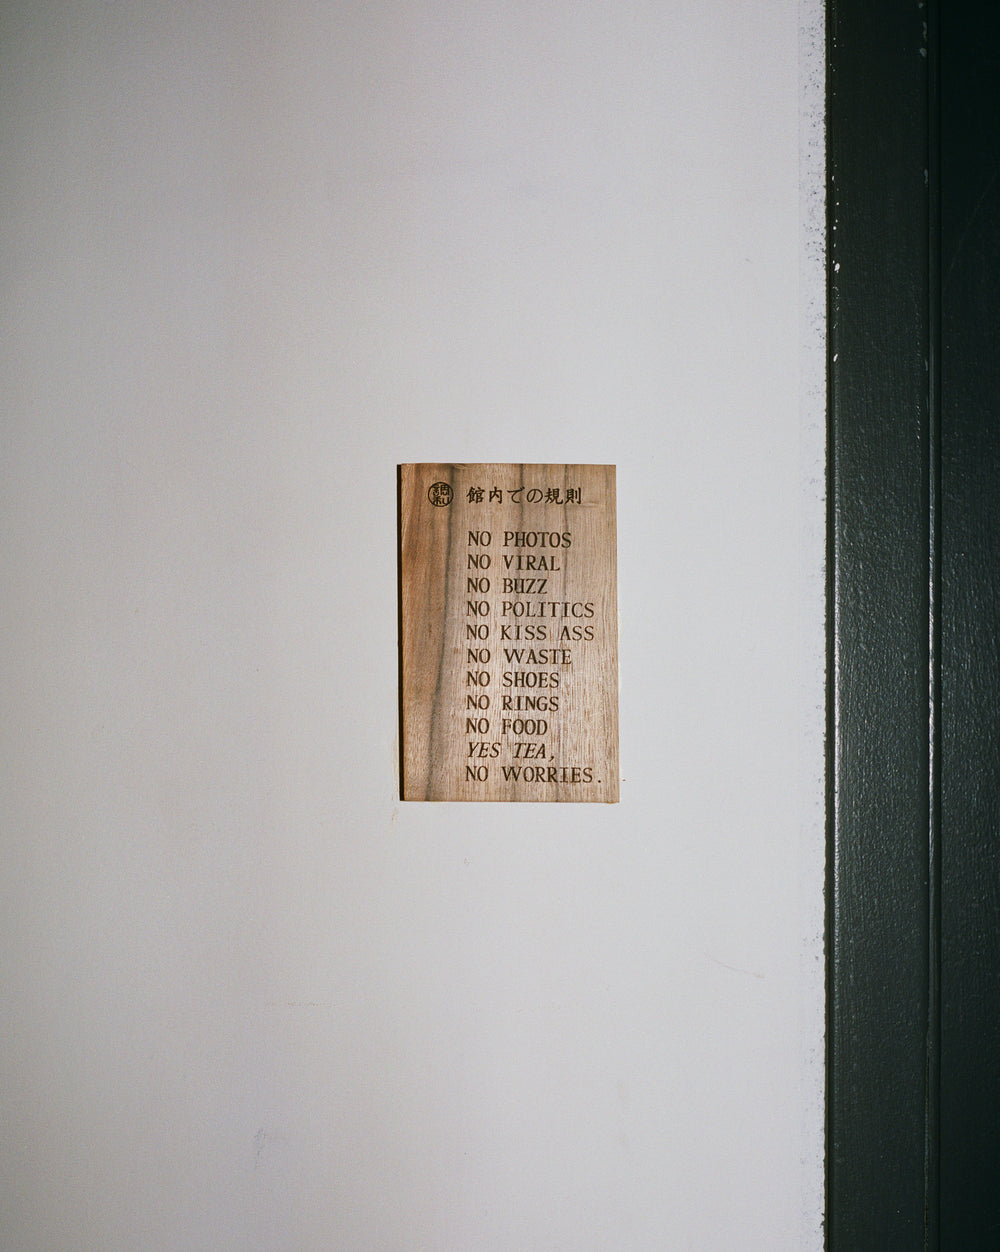 調和 館内での規則
NO PHOTOS
NO VIRAL
NO BUZZ
NO POLITICS
NO KISS ASS
NO WASTE
NO SHOES
NO RINGS
NO FOOD
YES TEA,
NO WORRIES.